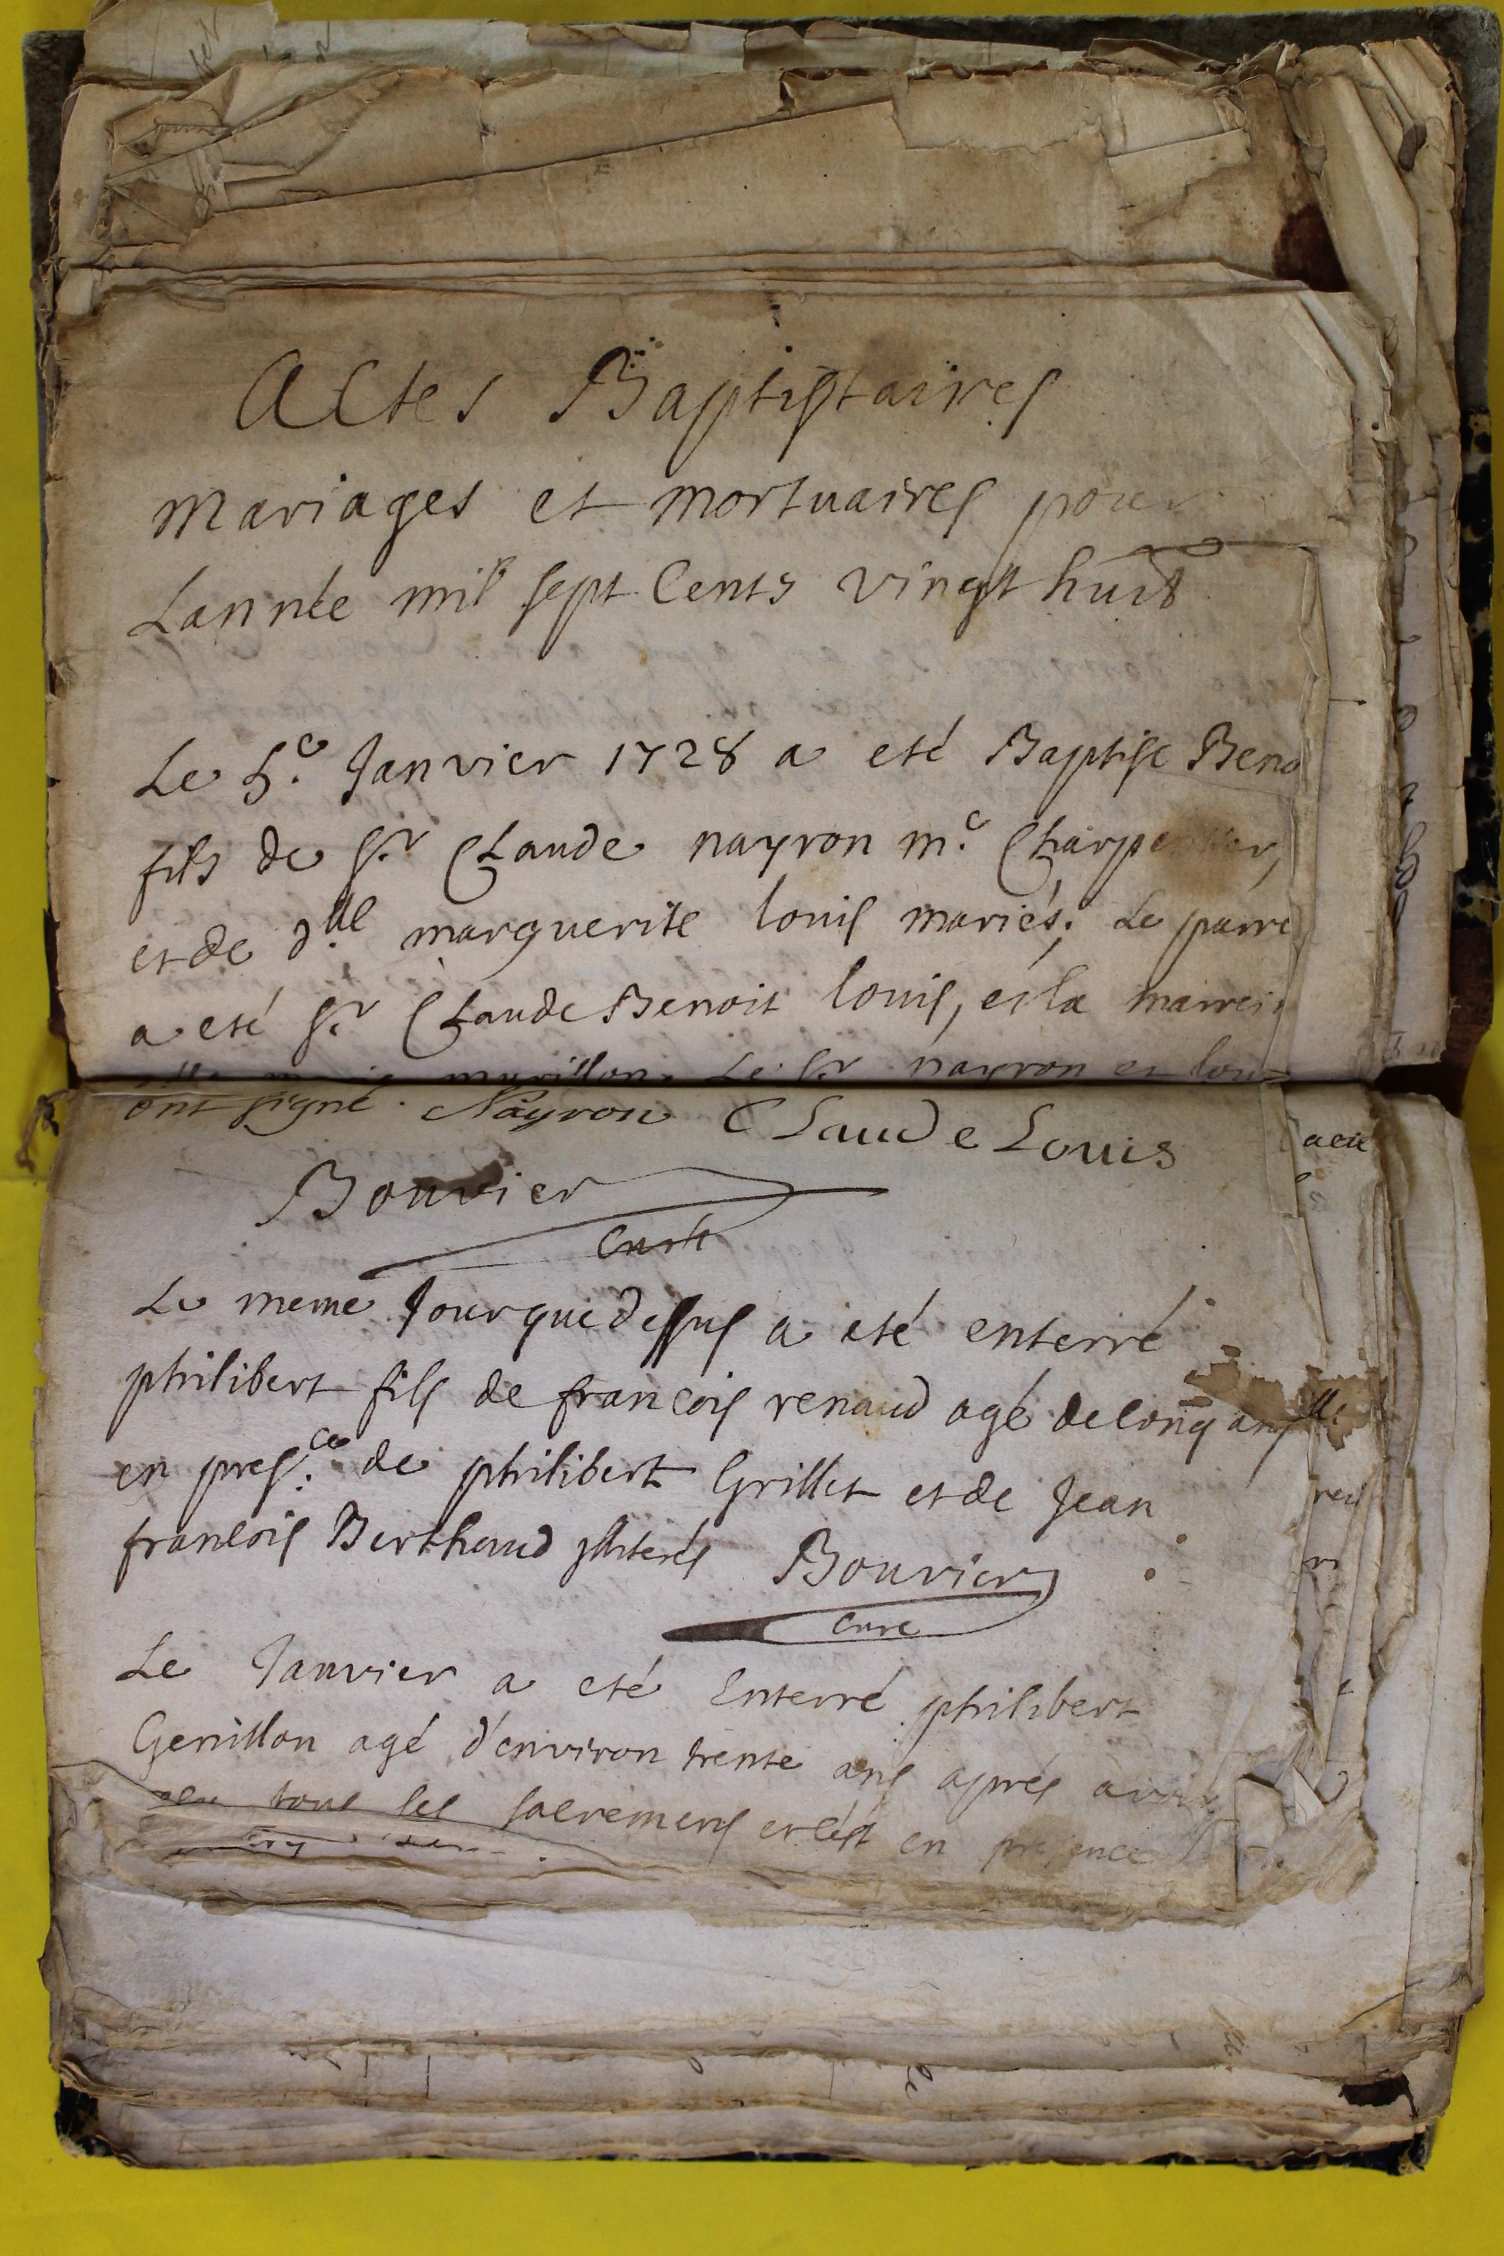 Actes Baptistaires
Mariages et mortuaires pour
Lannée mil sept Cents vingt huit
Le 5.e Janvier 1728 a eté Baptise Beno
fils de Sr. Claude nayron m.e Charpentier,
et de d.lle marguerite louis mariés; Le parre
a eté Sr. Claude Benoit louis, et la marrei
murillon. Le Sr. nayron et lou
ont signé. Nayron Claude Louis
Bouvier
Curé
Le meme Jour que dessus a eté enterré
philibert fils de francois renaud agé de cinq ans
en pres.ce de philibert Grillet et de Jean
francois Berthaud Bouvier
Curé
Le Janvier a eté Enterré philibert
Genillon agé d'environ trente ans aprés avoir
tous les sacremens et c'est en presence